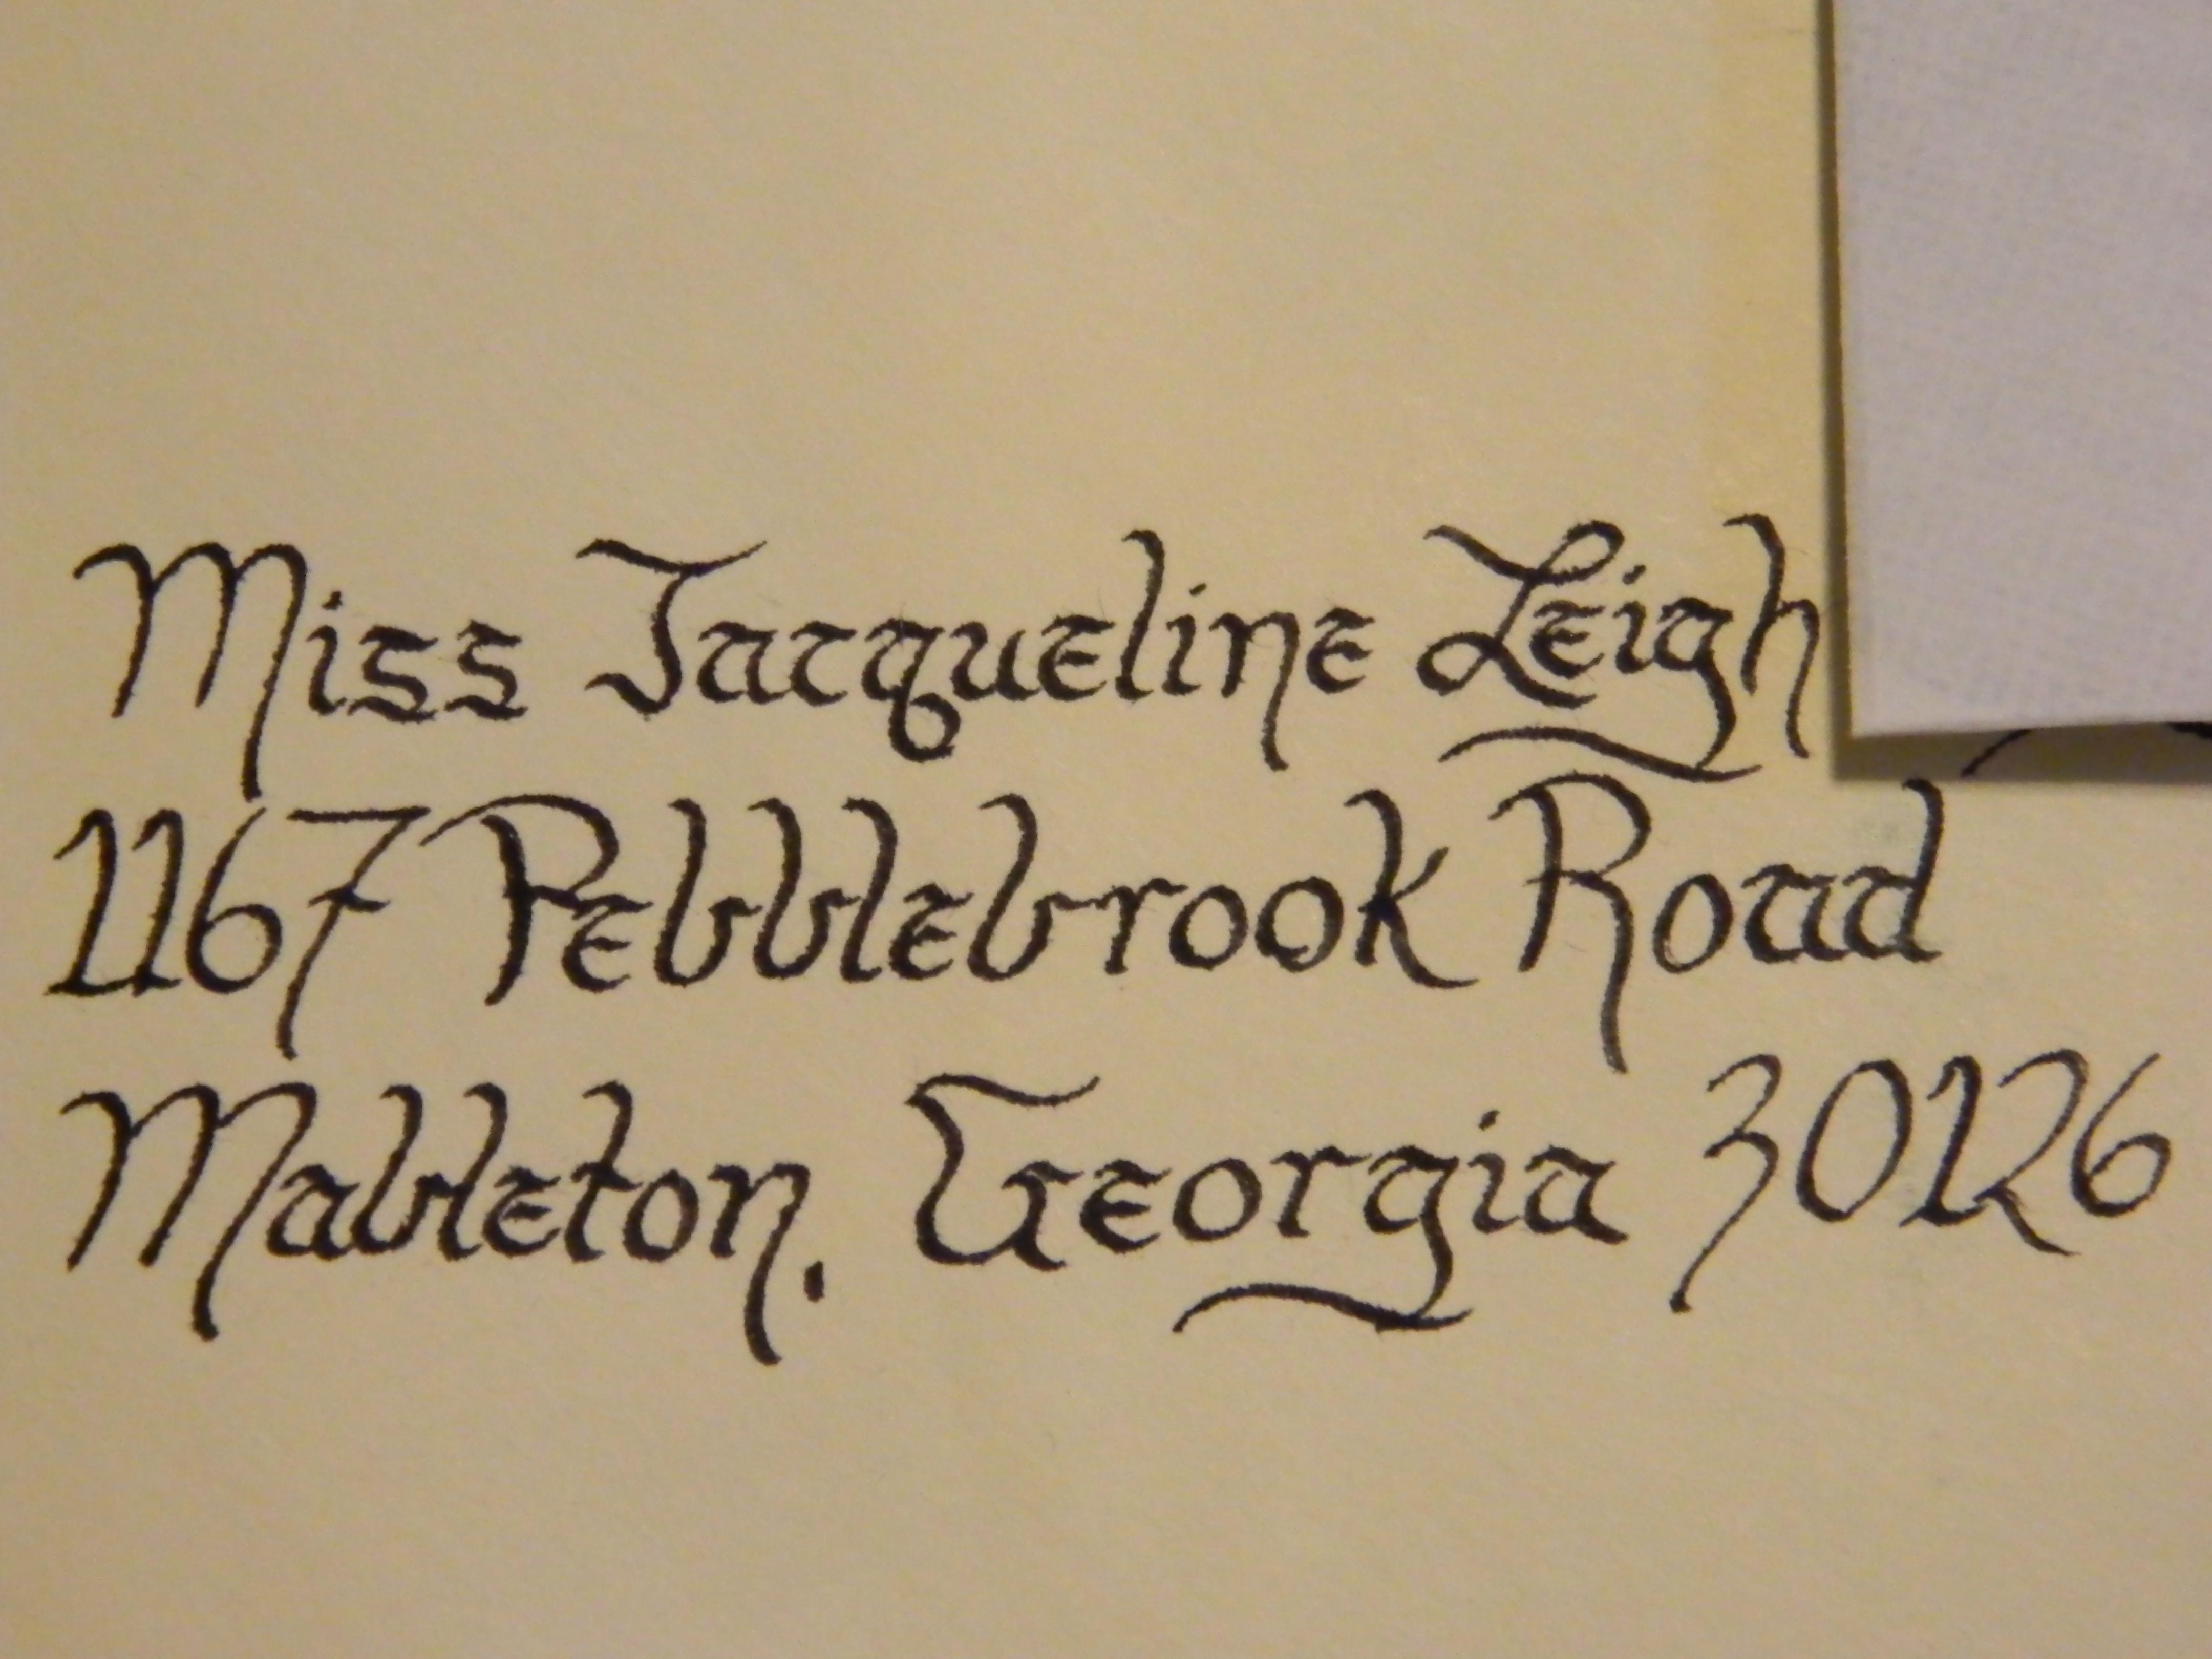 Miss Jacqueline Leigh
1167 Pebblebrook Road
Mableton, Georgia 30126